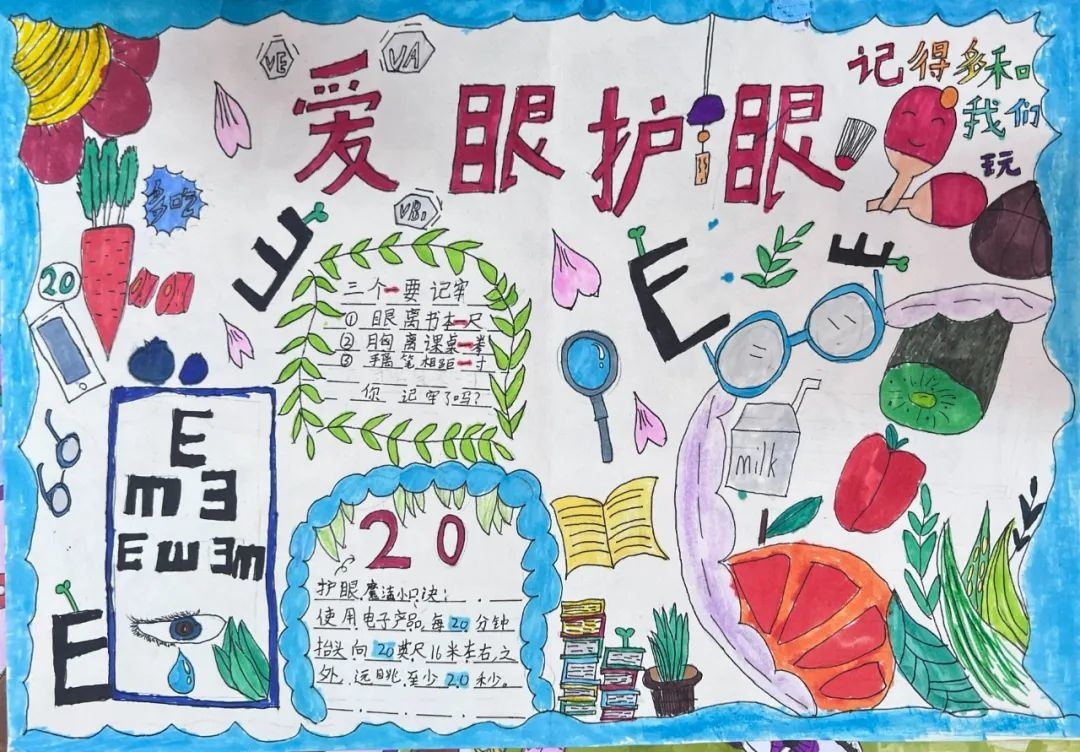 VE
VA
爱眼护眼
记得多和
我们
玩
多吃
VB₁
20
三个一要 记牢
① 眼离书本一尺
② 胸离课桌一拳
③ 手离笔相距一寸
你记牢了吗?
E
E
E
milk
E
m E
E m E m
E
20
护眼魔法小口诀:
使用电子产品,每20分钟
抬头向20英尺16米左右之
外,远眺,至少20秒。